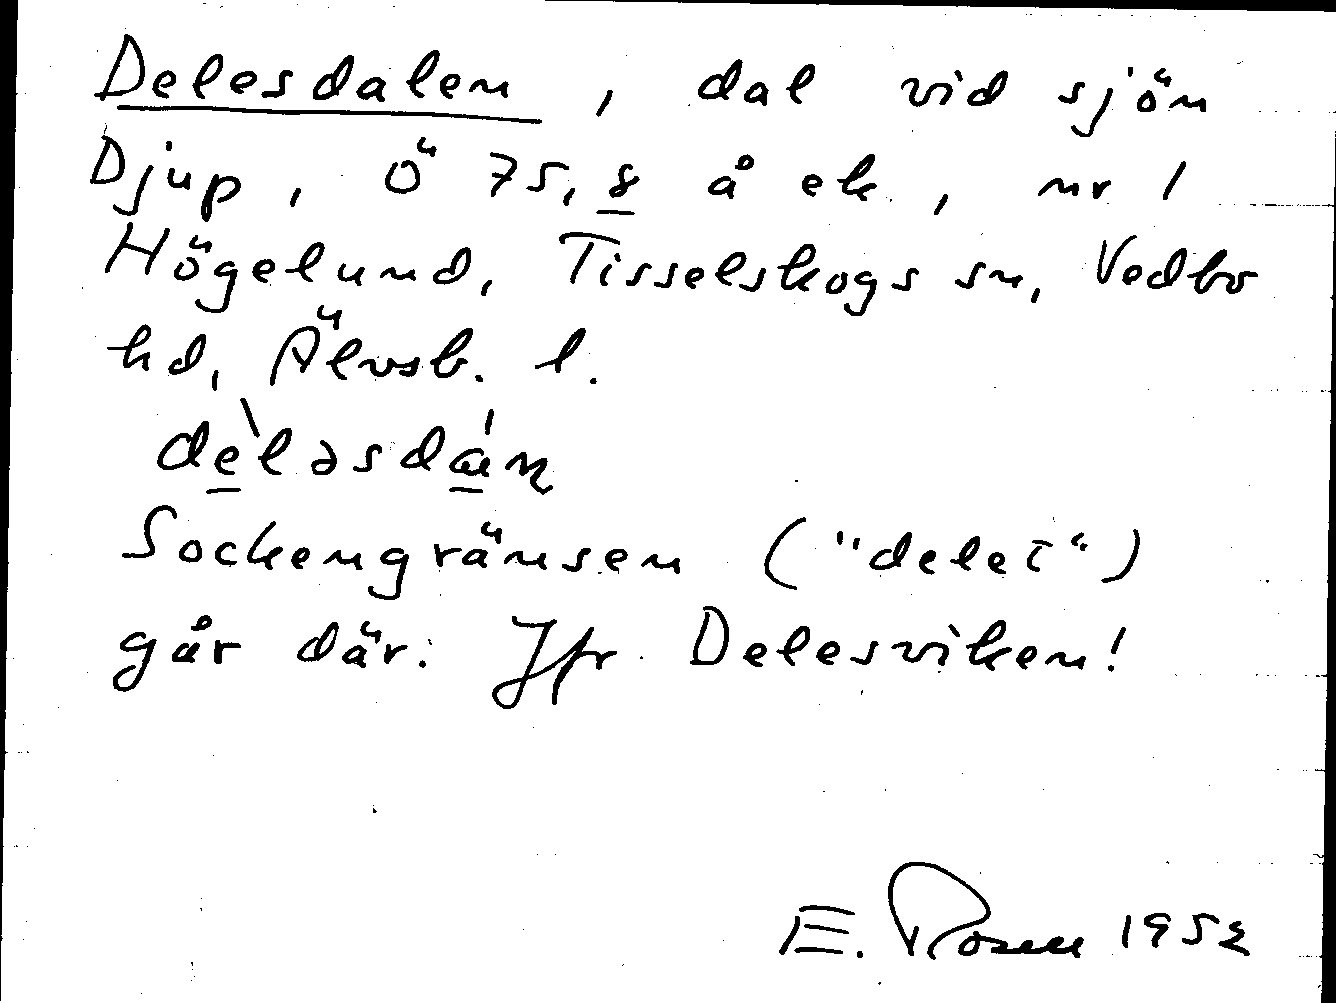 Delesdalen, dal vid sjön
Djup, Ö 75, 8 å ek., nr 1
Högelund, Tisselskogs sn, Vedbo
hd, Älvsb. l.
dèləsdán
Sockengränsen ("delet")
går där. Jfr Delesviken!
E. Rosell 1952